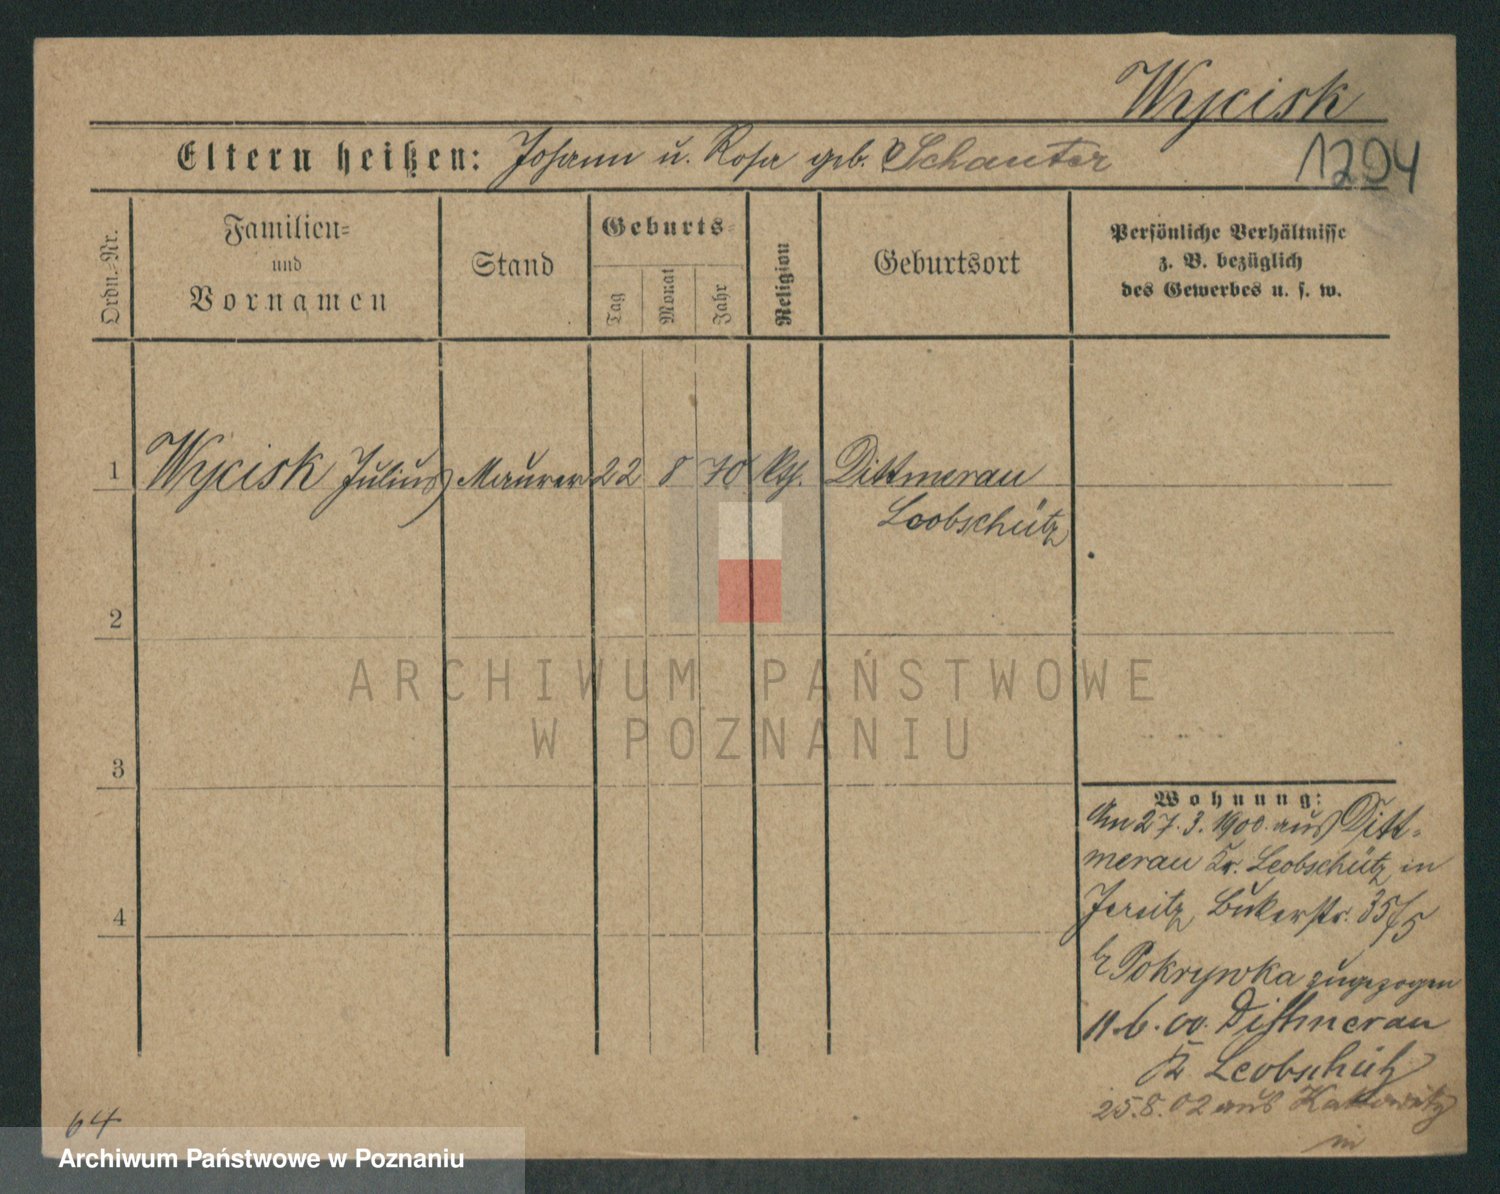 Wycisk
Eltern heißen: Johann u. Rosa geb. Schauter
1204
Ordn.-Nr.
Familien-
und
Vornamen
Stand
Geburts-
Tag
Monat
Jahr
Religion
Geburtsort
Persönliche Verhältnisse
z. B. bezüglich
des Gewerbes u. s. w.
1 Wycisk Julius Maurer 22 8 70 kth. Dittmerau
Leobschütz
2
ARCHIWUM PAŃSTWOWE
W POZNANIU
3
Wohnung:
Am 27.3.1900 aus Ditt-
merau Kr. Leobschütz in
Jersitz, Bukerstr. 35/5
4
b Pokrywka zugezogen
11.6.00. Dittmerau
K Leobschütz
25.8.02 aus Kattowitz
in
64
Archiwum Państwowe w Poznaniu